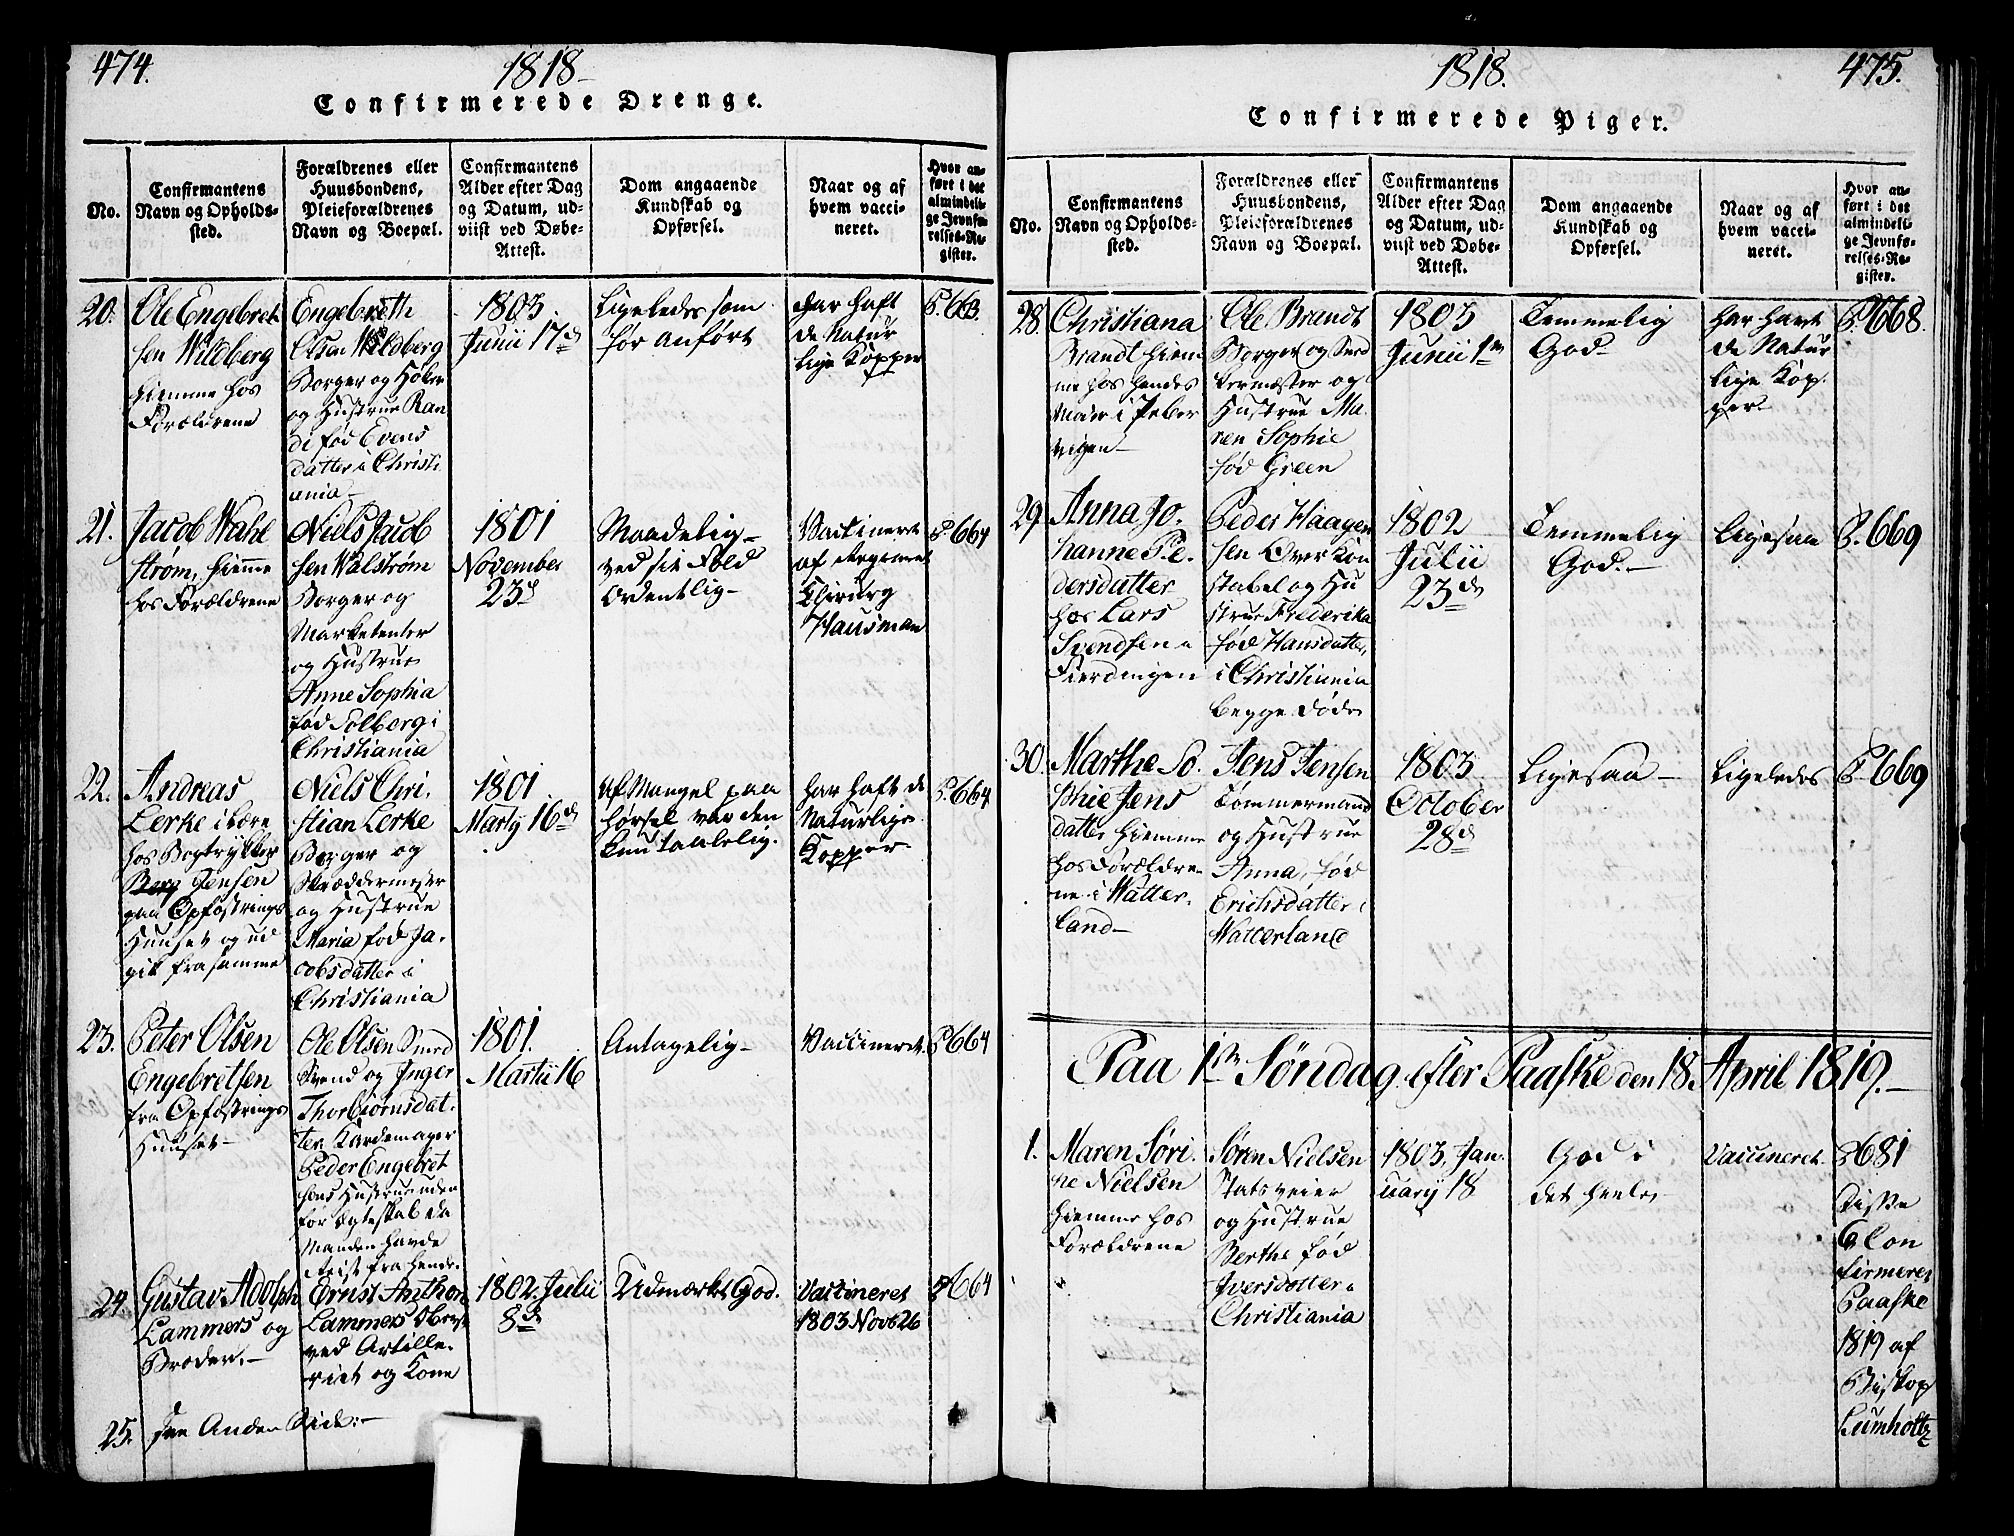 474.
1818
Confirmerede Drenge.
No.
Confirmantens
Navn og Opholds-
sted.
Forældrenes eller
Huusbondens,
Pleieforældrenes
Navn og Boepæl.
Confirmantens
Alder efter Dag
og Datum, ud-
viist ved Døbe-
Attest.
Dom angaaende
Kundskab og
Opførsel.
Naar og af
hvem vacci-
neret.
Hvor an-
ført i det
almindeli-
ge Jevnfø-
relses-Re-
gister.
20.
Ole Engebret
sen Wildberg
hiemme hos
Forældrene
Engebreth
Olsen Wildberg
Borger og Høker
og Hustrue Ran
di fød Evens
datter i Christi
ania
1803
Junii 17de
Ligeledes som
før anført
Har haft
de Natur
lige Kopper
P. 663.
21.
Jacob Wahl
strøm, hiemme
hos Forældrene
Niels Jacob
sen Walstrøm
Borger og
Marketenter
og Hustrue
Anne Sophia
fød Solberg i
Christiania
1801
November
23d
Maadelig
ved sit Fold
Ordentlig
Vaccineret
af Regiment
Chirurg
Hausman
P. 664
22.
Andreas
Lerke i Lære
hos Bogtrykker
Berg Jensen
paa Opfostrings
Huuset og ud
gik fra samme
Niels Chri
stian Lerke
Borger og
Skræddermester
og Hustrue
Maria fød Ja-
cobsdatter i
Christiania
1801
Martij 16de
Af Mangel paa
hørsel var den
kun taalelig.
Har haft de
Naturlige
Kopper
P. 664
23.
Peter Olsen
Engebretsen
fra Opfostrings
Huuset
Ole Olsen Smed
Svend og Inger
Thorbiørnsdat-
ter Kardemager
Peder Engebret
sens Hustrue uden
for Ægteskab da
Manden havde
reist fra hende.
1801.
Martii 16
Antagelig
Vaccineret.
P. 664
24.
Gustav Adolph
Lammers og
Broder.
Ernst Anthon
Lammers Oberst
ved Artille-
riet og Kone
1802. Julii
8de
Udmærket God.
Vaccineret
1803 Novb 26
P. 664
25.
see Anden Side:
1818.
475.
Confirmerede Piger.
No.
Confirmantens
Navn og Opholds-
sted.
Forældrenes eller
Huusbondens,
Pleieforældrenes
Navn og Boepæl.
Confirmantens
Alder efter Dag
og Datum, ud-
viist ved Døbe-
Attest.
Dom angaaende
Kundskab og
Opførsel.
Naar og af
hvem vacci-
neret.
Hvor an-
ført i det
almindeli-
ge Jevnfø-
relses-Re-
gister.
28
Christiana
Brandt hiem
me hos hendes
Moder i Peber
vigen
Ole Brandt
Borger og Sned
kermester og
Hustrue Ma-
ren Sophie
fød Green
1803
Junii 1ste
Temmelig
God
Har havt
de Natur
lige Kop-
per
P. 668.
29
Anna Jo-
hanne Pe-
dersdatter
hos Lars
Svendsen i
Fierdingen
Peder Haagen
sen Over Kon
stabel og Hu
strue Frederika
fød Hansdatter
i Christiania
begge døde
1802
Julii
23de
Temmelig
God.
Ligesaa
P. 669
30.
Marthe So-
phie Jens
datter hiemme
hos Forældre-
ne i Watter-
land
Jens Jensen
Tømmermand
og Hustrue
Anna, fød
Erichsdatter i
Watterland
1803
October
28d
Ligesaa
Ligeledes
P. 669
Paa 1ste Søndag efter Paaske den 18. April 1819.
1.
Maren Søri-
ne Nielsen
hiemme hos
Forældrene
Søren Nielsen
Statsveier
og Hustrue
Berthe fød
Iversdatter i
Christiania
1803, Jan-
uarij 18
God i
det heele
Vaccineret.
P. 681
Disse
Con
firmeret
Paaske
1819 af
Biskop
Lumholtz